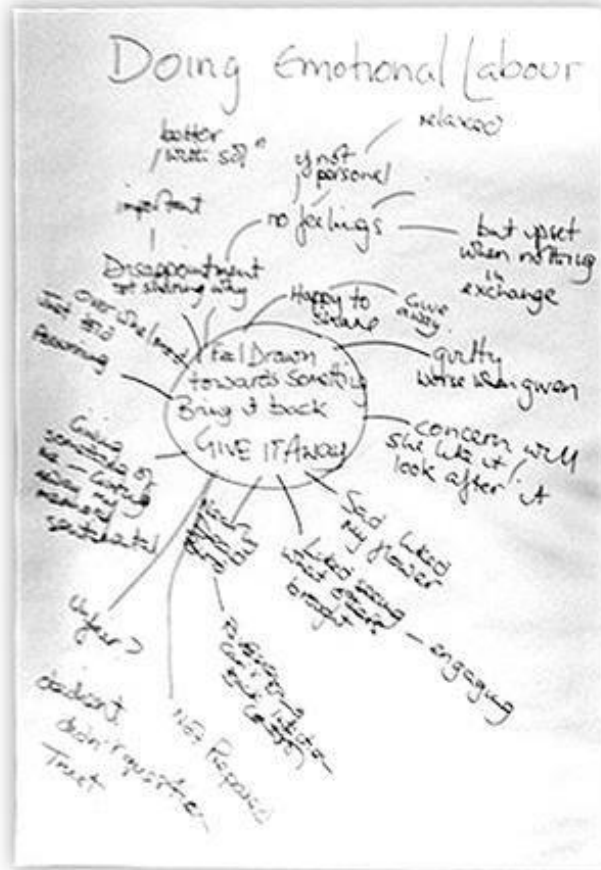 Doing Emotional Labour
relaxed
better
with
if not
personal
important
no feelings
but upset
when nothing
in
exchange
Disappointment
not sharing why
Happy to
Give
away
overwhelmed
Just told
I feel Drawn
towards something
Bring it back
GIVE IT AWAY
guilty
worse when given
concern will
she like it /
look after it
Giving
something of
me
sentimental
Sad liked
my flower
Liked seeing
what others
brought
— engaging
Unfair?
obedient
didn't question
Trust
Not Prepared